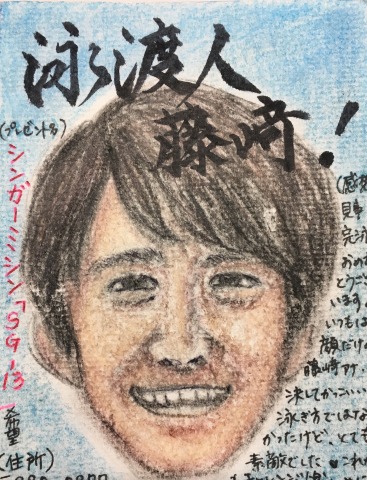 泳渡人
藤崎!
(プレゼント名)
シンガーミシン「SG-13
希望
(住所)
(感想
見事
完泳
おめで
とうござ
います。
いつもは
顔だけの
藤崎アナ、
決してかっこいい
泳ぎ方ではな
かったけど、とても
素敵でした。これか